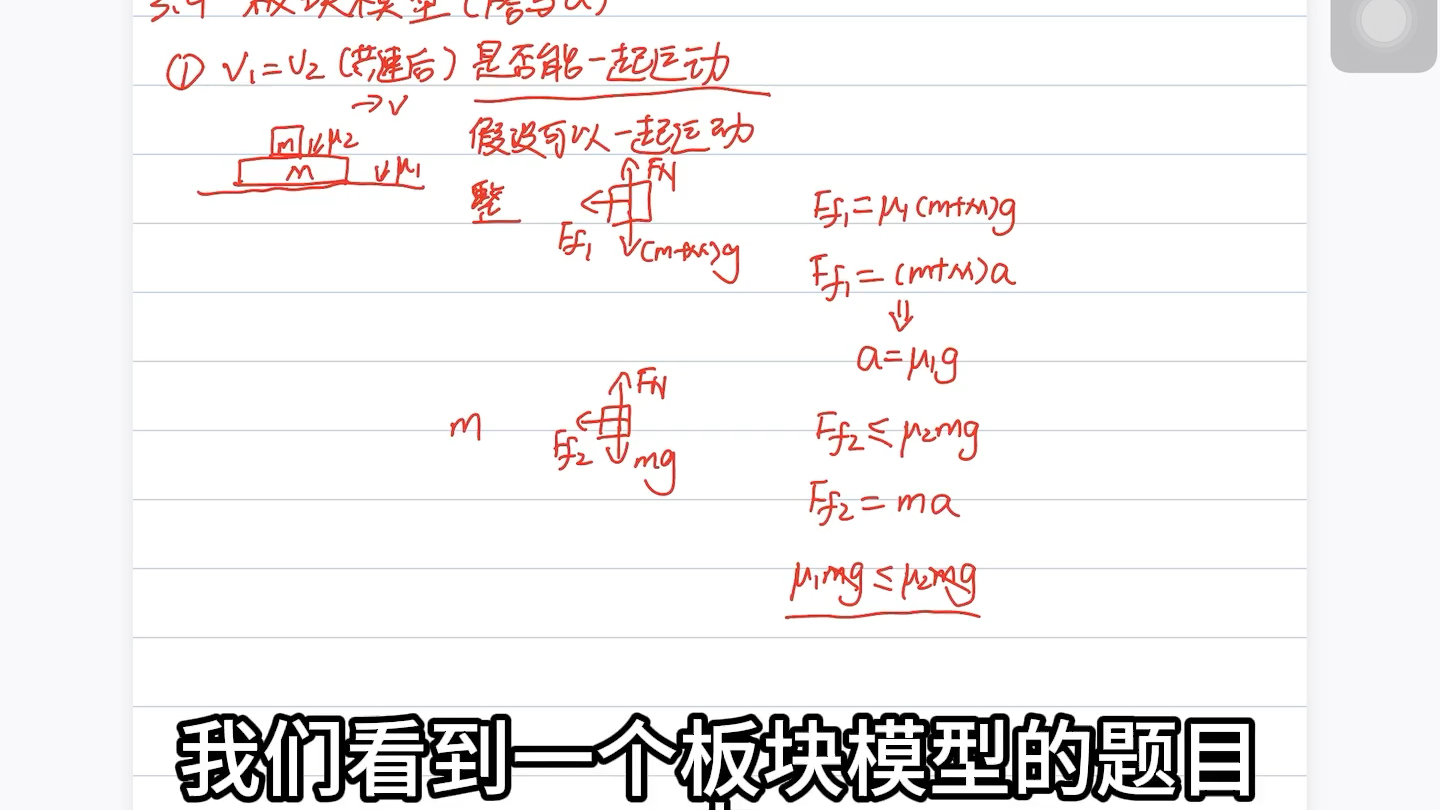 3.4 板块模型(
① V₁=V₂(共速后)是否能一起运动
→V
m ↓μ2
M ↓μ1
假设可以一起运动
整
FN
Ff₁
(m+M)g
Ff₁=μ₁(m+M)g
Ff₁=(m+M)a
⇓
a=μ₁g
m
FN
Ff₂
mg
Ff₂≤μ₂mg
Ff₂=ma
μ₁mg≤μ₂mg
我们看到一个板块模型的题目